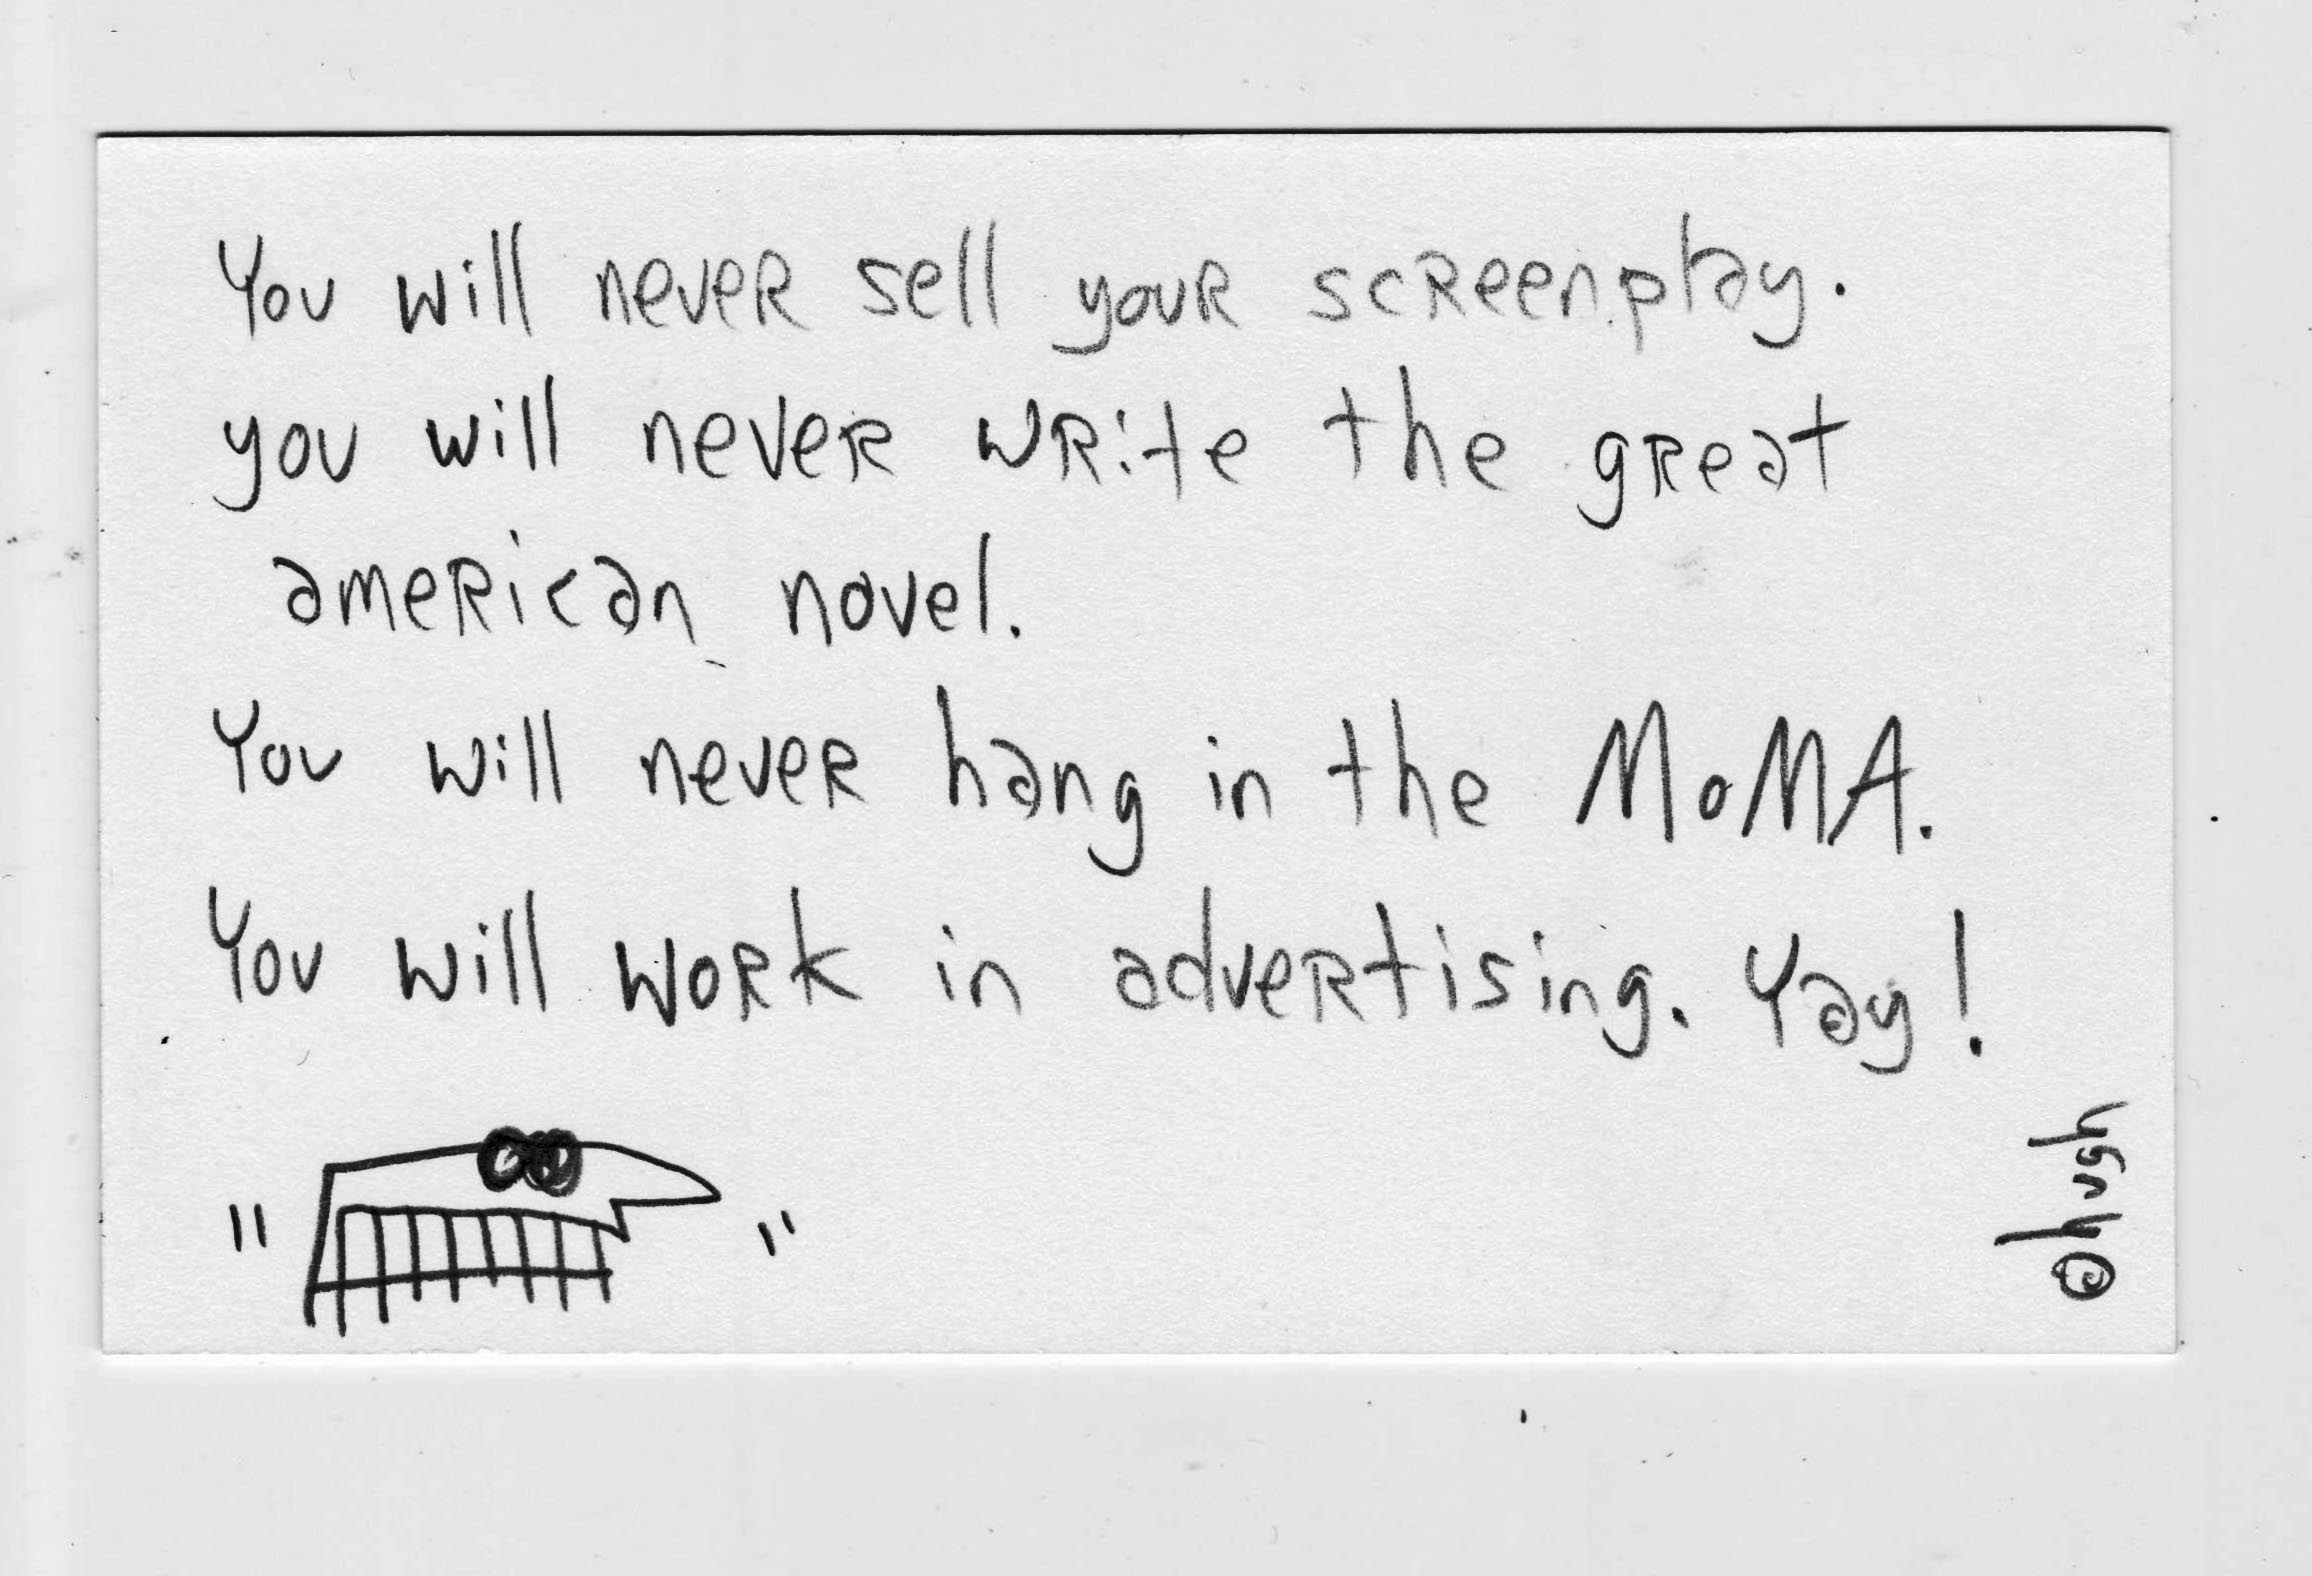 You will never sell your screenplay.
you will never write the great
american novel.
You will never hang in the MoMA.
You will work in advertising. Yay!
" "
©hugh